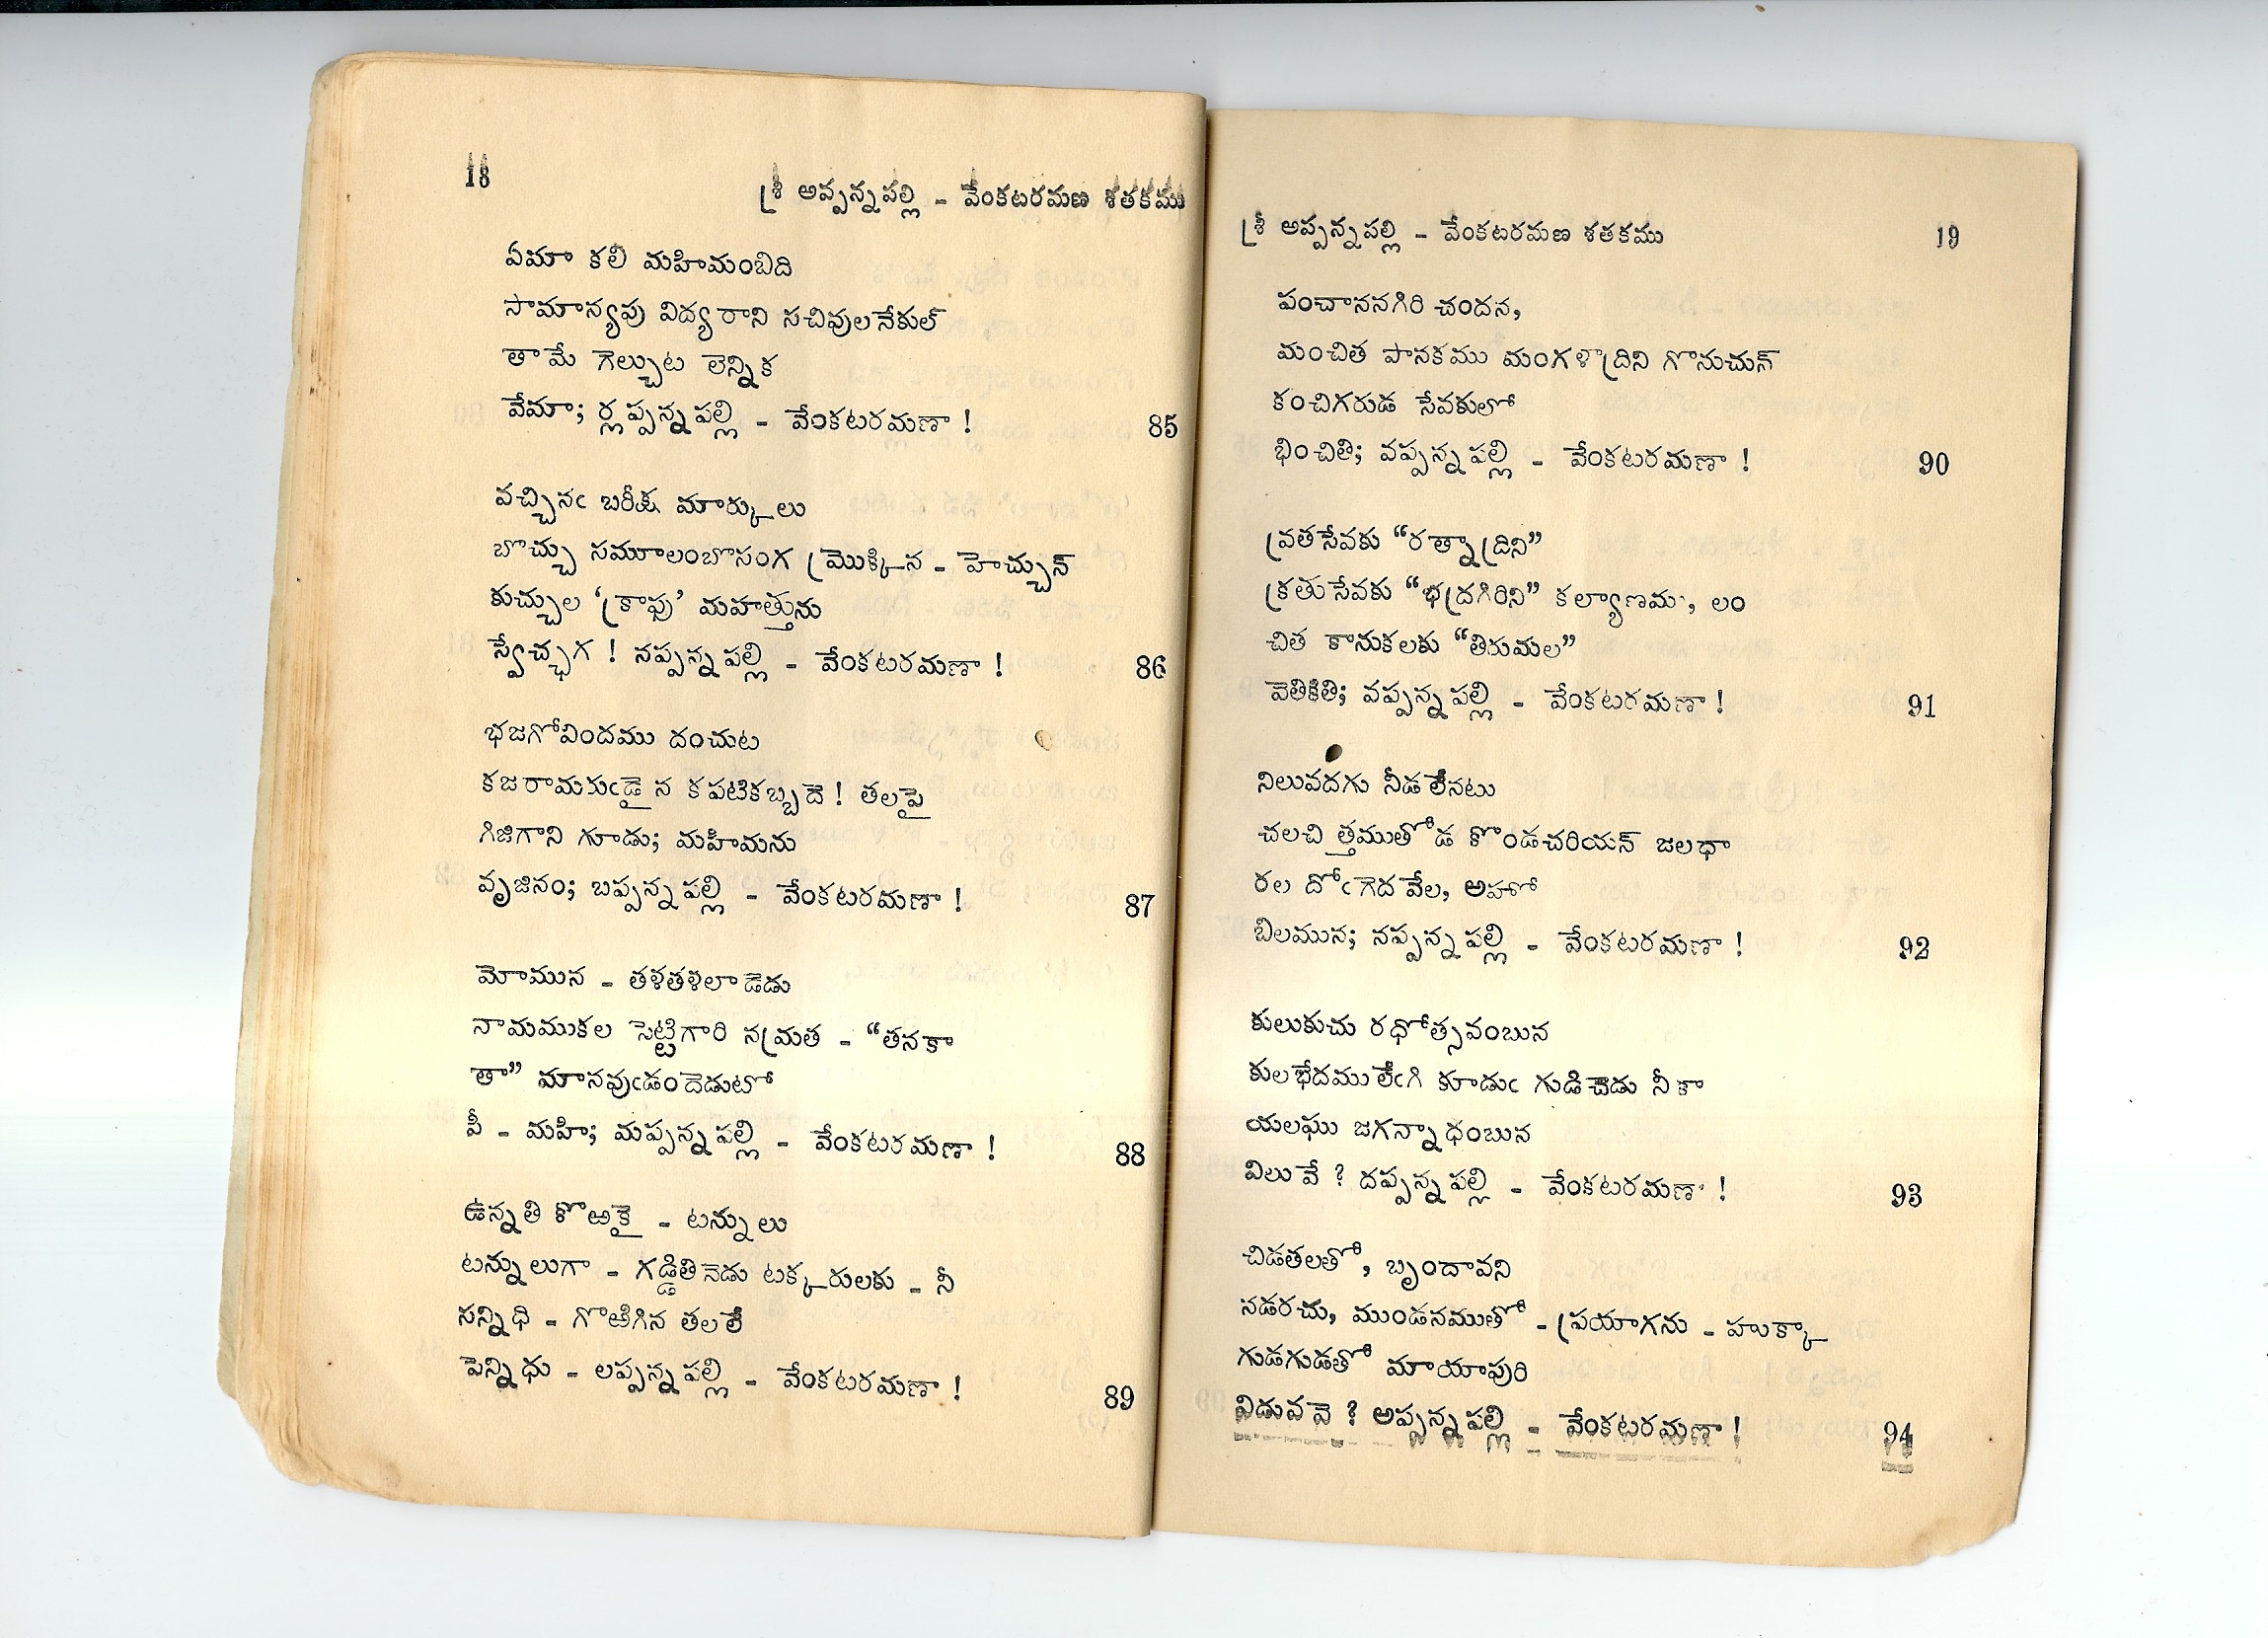 18
శ్రీ అప్పన్నపల్లి - వేంకటరమణ శతకము
ఏమా కలి మహిమంబిది
సామాన్యపు విద్యరాని సచివులనేకుల్
తామే గెల్చుట లెన్నిక
వేమా; ర్లప్పన్నపల్లి - వేంకటరమణా ! 85
వచ్చినఁ బరీక్ష మార్కులు
బొచ్చు సమూలంబొసంగ మ్రొక్కిన - హెచ్చున్
కుచ్చుల ‘క్రాఫు’ మహత్తును
స్వేచ్ఛగ ! నప్పన్నపల్లి - వేంకటరమణా ! 86
భజగోవిందము దంచుట
కజరామకుఁడైన కపటికబ్బదె ! తలపై
గిజిగాని గూడు; మహిమను
వృజినం; బప్పన్నపల్లి - వేంకటరమణా ! 87
మోమున - తళతళలాడెడు
నామముకల సెట్టిగారి నమ్రత - “తనకా
తా” మానవుఁడందెడుటో
పీ - మహి; మప్పన్నపల్లి - వేంకటరమణా ! 88
ఉన్నతి కొఱకై - టన్నులు
టన్నులుగా - గడ్డితినెడు టక్కరులకు - నీ
సన్నిధి - గొఱిగిన తలలే
పెన్నిధు - లప్పన్నపల్లి - వేంకటరమణా ! 89
శ్రీ అప్పన్నపల్లి - వేంకటరమణ శతకము 19
పంచాననగిరి చందన,
మంచిత పానకము మంగళాద్రిని గొనుచున్
కంచిగరుడ సేవకులో
భించితి; వప్పన్నపల్లి - వేంకటరమణా ! 90
వ్రతసేవకు “రత్నాద్రిని”
క్రతుసేవకు “భద్రగిరిని” కల్యాణమ, లం
చిత కానుకలకు “తిరుమల”
వెతికితి; వప్పన్నపల్లి - వేంకటరమణా ! 91
నిలువదగు నీడలేనటు
చలచిత్తముతోడ కొండచరియన్ జలధా
రల దోఁగెదవేల, అహో
బిలమున; నప్పన్నపల్లి - వేంకటరమణా ! 92
కులుకుచు రధోత్సవంబున
కులభేదములేఁగి కూడుఁ గుడిచెడు నీకా
యలఘు జగన్నాధంబున
విలువే ? దప్పన్నపల్లి - వేంకటరమణా ! 93
చిడతలతో, బృందావని
నడరచు, ముండనముతో - ప్రయాగను - హుక్కా
గుడగుడతో మాయాపురి
విడువవె ? అప్పన్నపల్లి - వేంకటరమణా ! 94